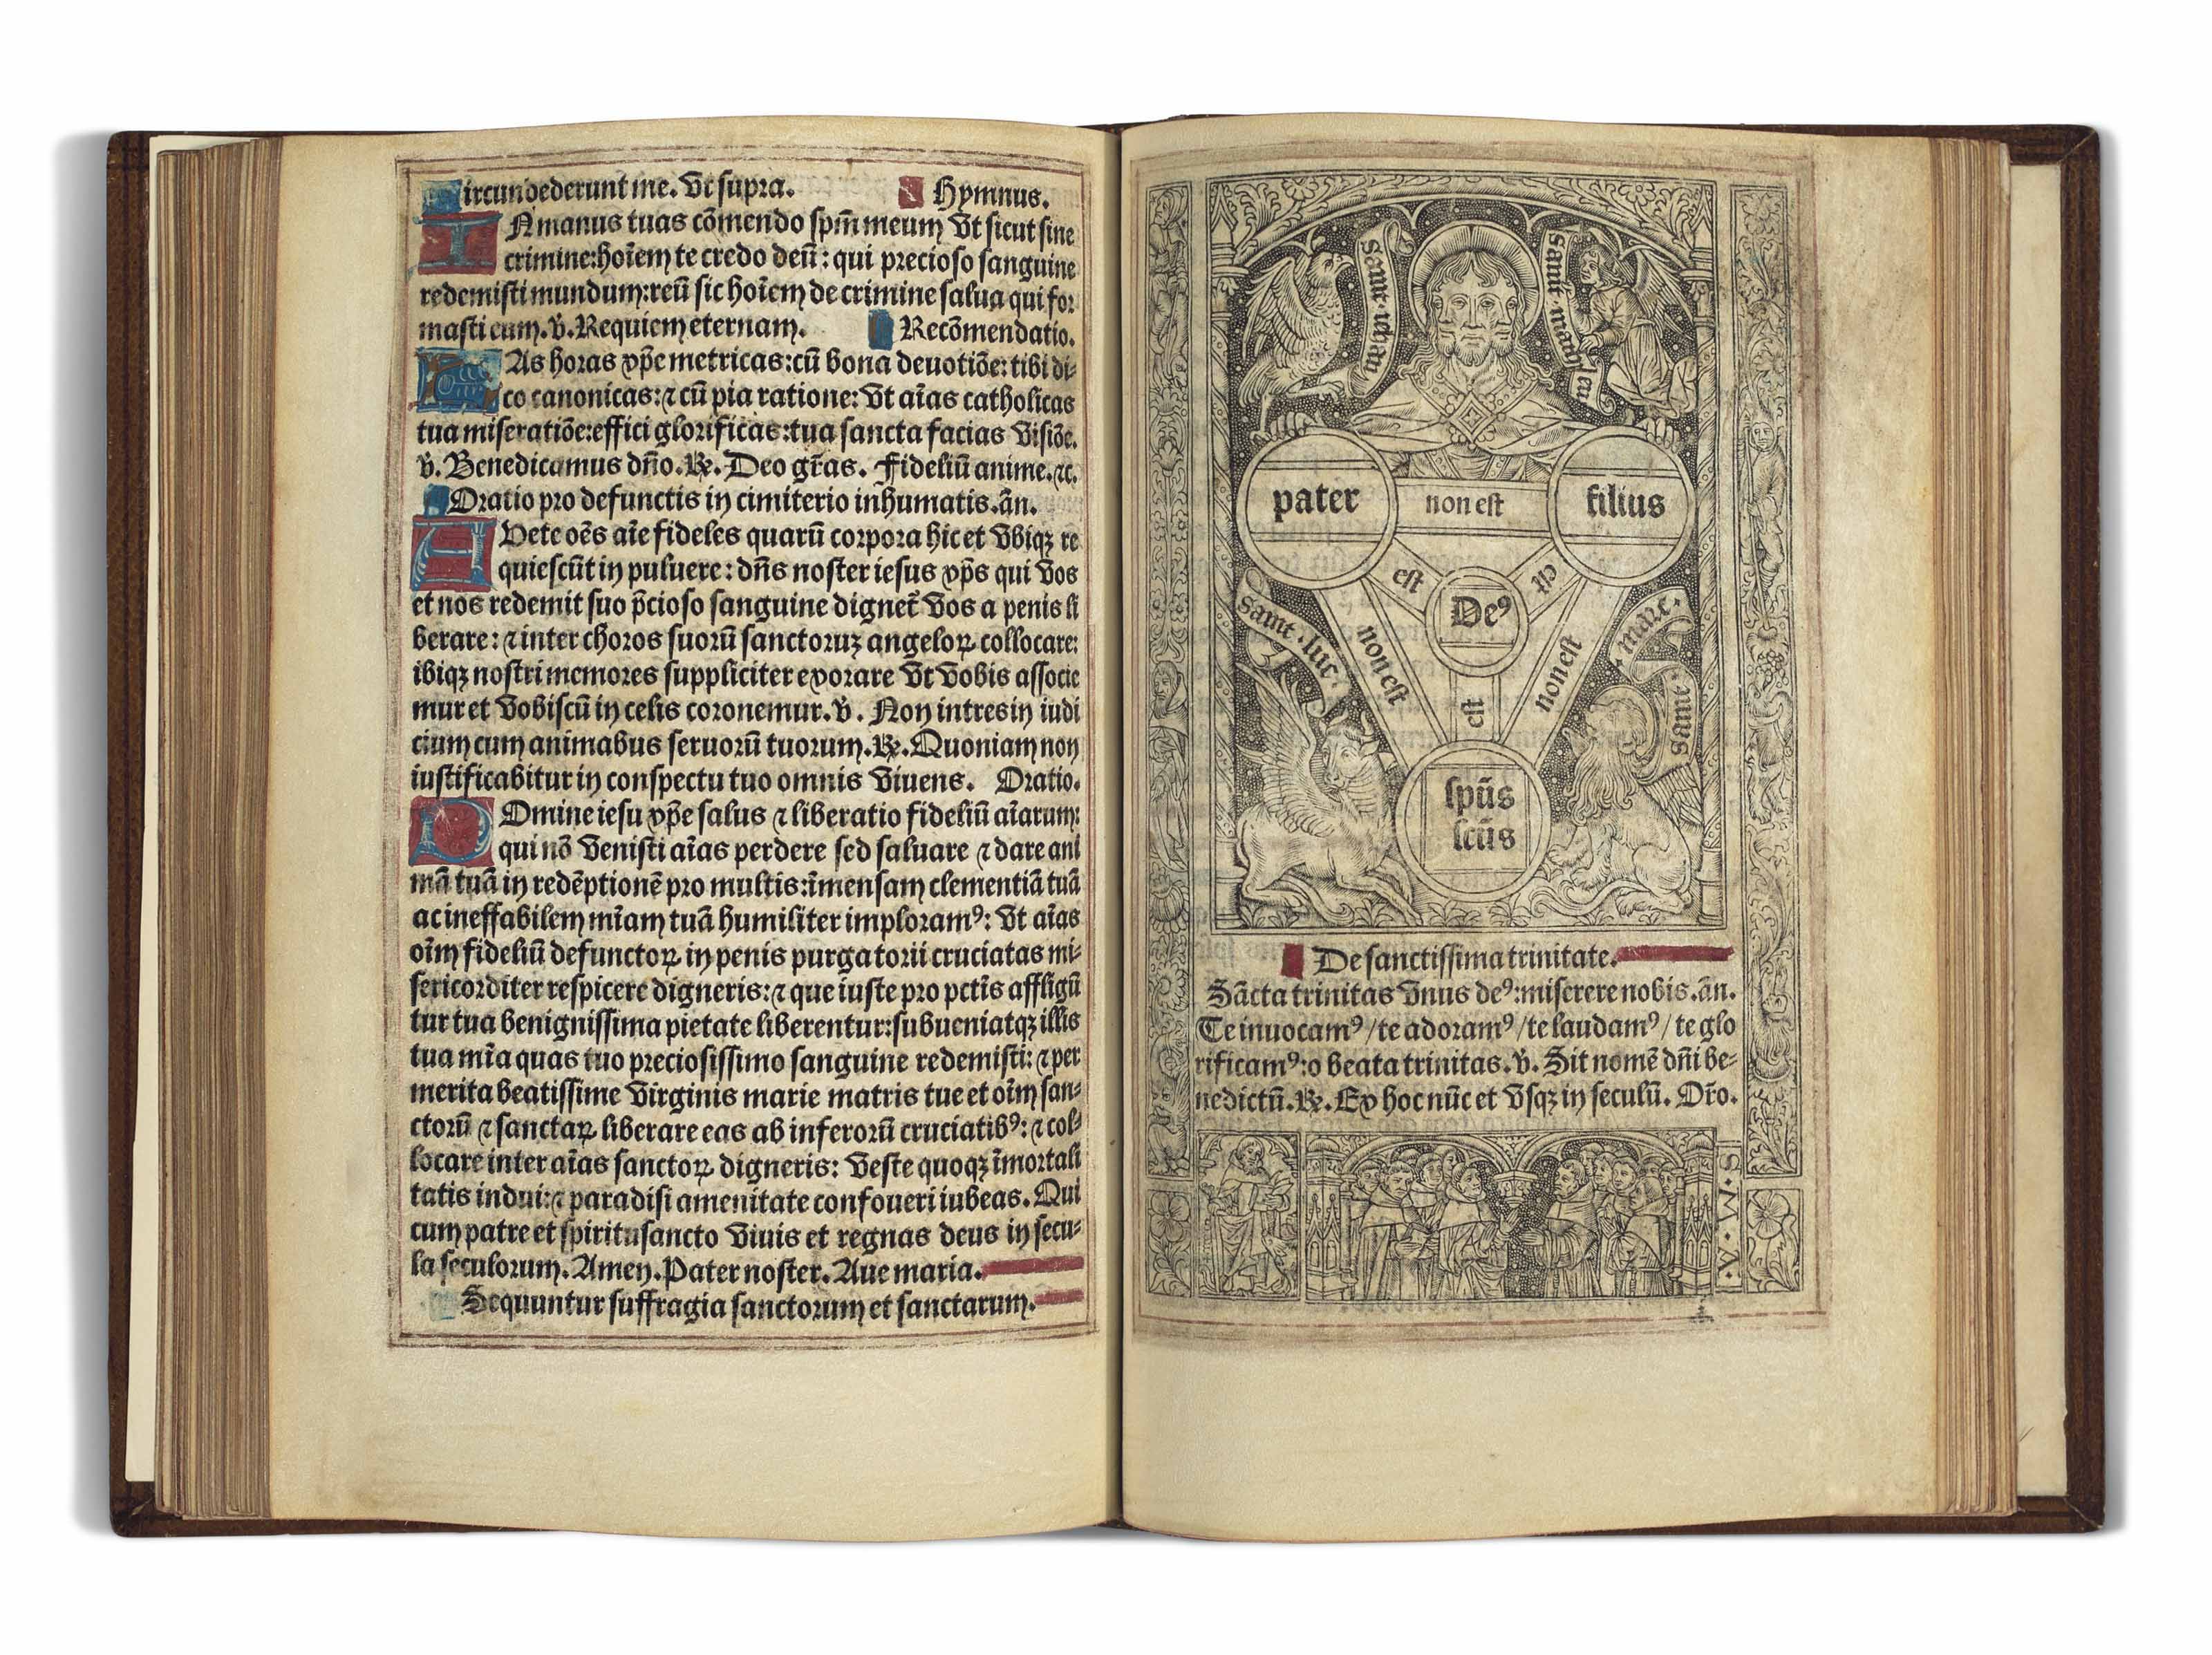 ircundederunt me. Vt supra. Hymnus.
IN manus tuas cōmendo spm̄ meum Vt sicut sine
crimine: hoīem te credo deū: qui precioso sanguine
redemisti mundum: reū sic hoīem de crimine salua qui for
masti eum. ℣. Requiem eternam. Recōmendatio.
HAs horas xp̄e metricas: cū bona deuotiōe: tibi di-
co canonicas: ⁊ cū pia ratione: Vt aīas catholicas
tua miseratiōe: effici glorificas: tua sancta facias Visiōe.
℣. Benedicamus dn̄o. ℟. Deo gr̄as. Fideliū anime. ⁊c.
Oratio pro defunctis in cimiterio inhumatis. ān.
AVete oēs aīe fideles quarū corpora hic et Vbiqꝫ re
quiescūt in puluere: dn̄s noster iesus xp̄s qui Vos
et nos redemit suo p̄cioso sanguine dignet̄ Vos a penis li
berare: ⁊ inter choros suorū sanctoruꝫ angeloꝝ collocare:
ibiqꝫ nostri memores suppliciter exorare Vt Vobis associe
mur et Vobiscū in celis coronemur. ℣. Non intres in iudi
cium cum animabus seruorū tuorum. ℟. Quoniam non
iustificabitur in conspectu tuo omnis Viuens. Oratio.
DOmine iesu xp̄e salus ⁊ liberatio fideliū aīarum:
qui nō Venisti aīas perdere sed saluare ⁊ dare ani
mā tuā in redēptionē pro multis: īmensam clementiā tuā
ac ineffabilem mīam tuā humiliter imploramꝰ: Vt aīas
oīm fideliū defunctoꝝ in penis purgatorii cruciatas mi-
sericorditer respicere digneris: ⁊ que iuste pro pctīs affligū
tur tua benignissima pietate liberentur: subueniatqꝫ illis
tua mīa quas tuo preciosissimo sanguine redemisti: ⁊ per
merita beatissime Virginis marie matris tue et oīm san-
ctorū ⁊ sanctaꝝ liberare eas ab inferorū cruciatibꝰ: ⁊ col-
locare inter aīas sanctoꝝ digneris: Veste quoqꝫ īmortali
tatis indui: ⁊ paradisi amenitate confoueri iubeas. Qui
cum patre et spiritusancto Viuis et regnas deus in secu-
la seculorum. Amen. Pater noster. Aue maria.
Sequuntur suffragia sanctorum et sanctarum.
sant
sant
pater non est filius
est est
Deꝰ
sant · luc ·
· marc ·
sant ·
non est
non est
est
spūs
scūs
De sanctissima trinitate.
Sācta trinitas Vnus deꝰ: miserere nobis. ān.
Te inuocamꝰ / te adoramꝰ / te laudamꝰ / te glo
rificamꝰ: o beata trinitas. ℣. Sit nomē dn̄i be-
nedictū. ℟. Ex hoc nūc et Vsqꝫ in seculū. Or̄o.